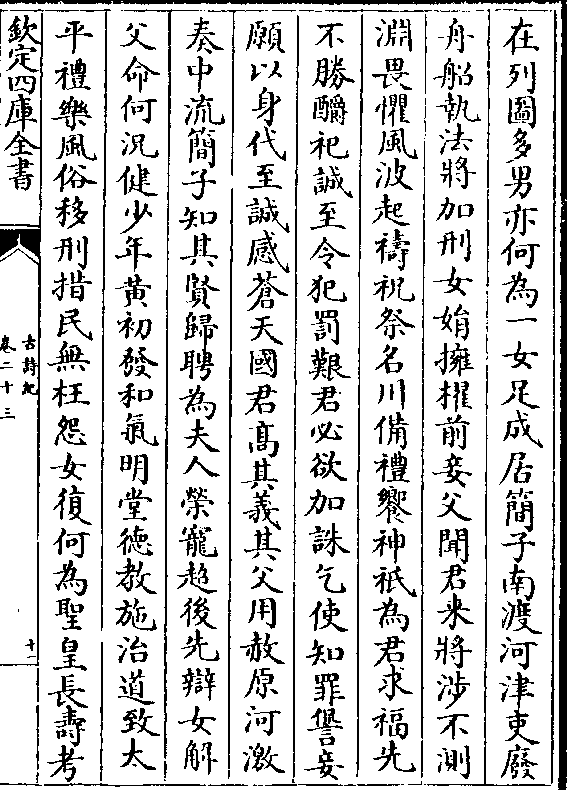 在列圖多男亦何為一女足成居簡子南渡河津吏廢
舟船執法將加刑女娟擁櫂前妾父聞君来將涉不測
淵畏懼風波起禱祝祭名川備禮饗神祇為君求福先
不勝釂祀誠至令犯罰艱君必欲加誅乞使知罪諐妾
願以身代至誠感蒼天國君髙其義其父用赦原河激
奏中流簡子知其賢歸聘為夫人榮寵超後先辯女解
父命何况健少年黄初發和氣明堂德教施治道致太
平禮樂風俗移刑措民無枉怨女復何為聖皇長壽考
欽定四庫全書
古詩紀
卷二十三
十二